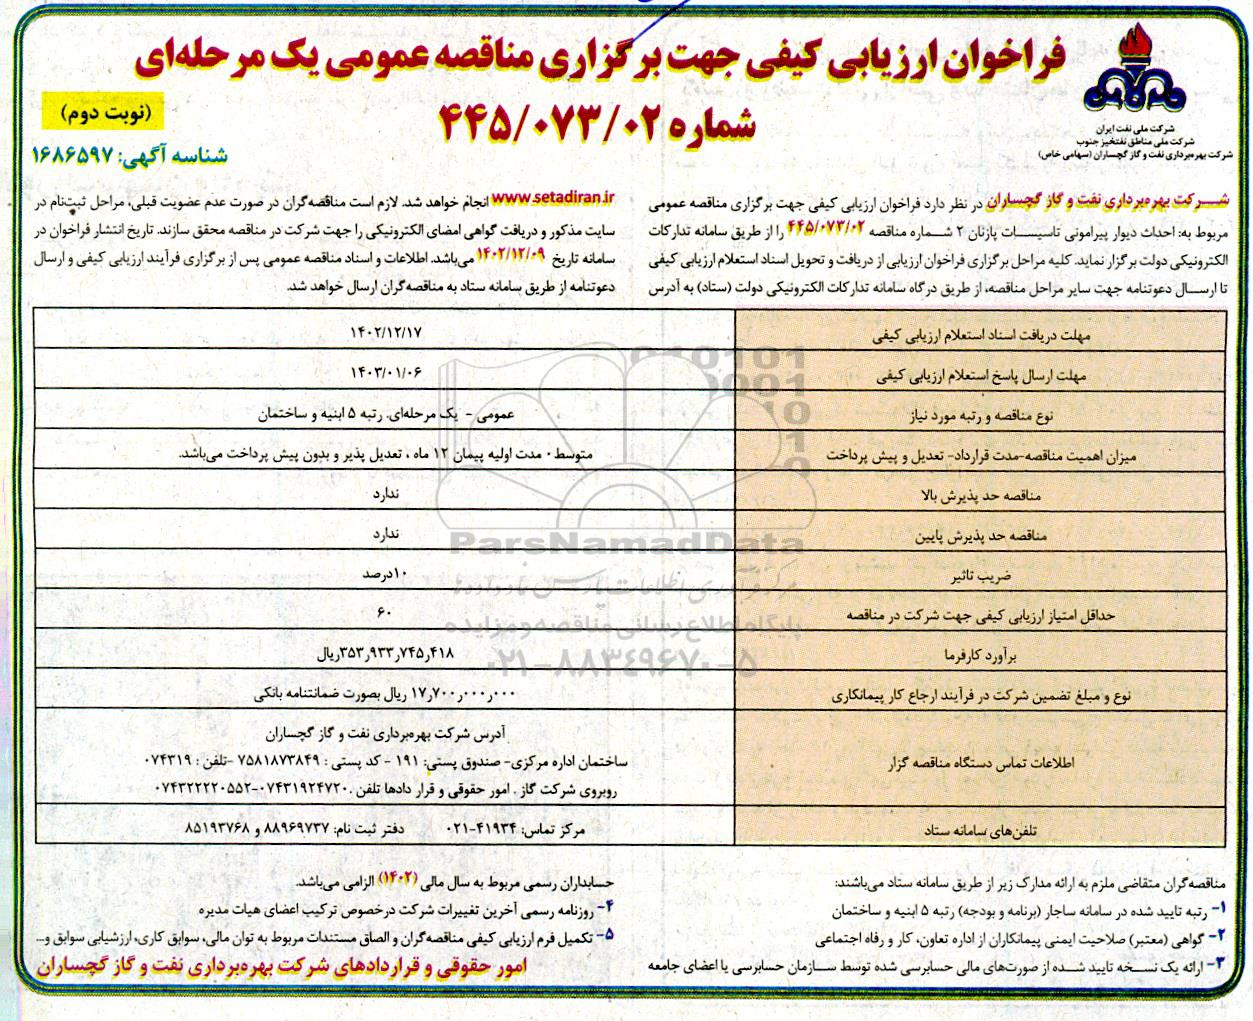 فراخوان ارزیابی کیفی جهت برگزاری مناقصه عمومی یک مرحله‌ای
شماره ۴۴۵/۰۷۳/۰۲
(نوبت دوم)
شناسه آگهی: ۱۶۸۶۵۹۷
شرکت ملی نفت ایران
شرکت ملی مناطق نفتخیز جنوب
شرکت بهره‌برداری نفت و گاز گچساران (سهامی خاص)
شرکت بهره‌برداری نفت و گاز گچساران در نظر دارد فراخوان ارزیابی کیفی جهت برگزاری مناقصه عمومی
مربوط به: احداث دیوار پیرامونی تاسیسات پازنان ۲ شماره مناقصه ۴۴۵/۰۷۳/۰۲ را از طریق سامانه تدارکات
الکترونیکی دولت برگزار نماید. کلیه مراحل برگزاری فراخوان ارزیابی از دریافت و تحویل اسناد استعلام ارزیابی کیفی
تا ارسال دعوتنامه جهت سایر مراحل مناقصه، از طریق درگاه سامانه تدارکات الکترونیکی دولت (ستاد) به آدرس
www.setadiran.ir انجام خواهد شد. لازم است مناقصه‌گران در صورت عدم عضویت قبلی، مراحل ثبت‌نام در
سایت مذکور و دریافت گواهی امضای الکترونیکی را جهت شرکت در مناقصه محقق سازند. تاریخ انتشار فراخوان در
سامانه تاریخ ۱۴۰۲/۱۲/۰۹ می‌باشد. اطلاعات و اسناد مناقصه عمومی پس از برگزاری فرآیند ارزیابی کیفی و ارسال
دعوتنامه از طریق سامانه ستاد به مناقصه‌گران ارسال خواهد شد.
مهلت دریافت اسناد استعلام ارزیابی کیفی ۱۴۰۲/۱۲/۱۷
مهلت ارسال پاسخ استعلام ارزیابی کیفی ۱۴۰۳/۰۱/۰۶
نوع مناقصه و رتبه مورد نیاز عمومی - یک مرحله‌ای. رتبه ۵ ابنیه و ساختمان
میزان اهمیت مناقصه-مدت قرارداد- تعدیل و پیش پرداخت متوسط۰ مدت اولیه پیمان ۱۲ ماه ، تعدیل پذیر و بدون پیش پرداخت می‌باشد.
مناقصه حد پذیرش بالا ندارد
مناقصه حد پذیرش پایین ندارد
ضریب تاثیر ۱۰درصد
حداقل امتیاز ارزیابی کیفی جهت شرکت در مناقصه ۶۰
برآورد کارفرما ۳۵۳٫۹۳۳٫۷۴۵٫۴۱۸ریال
نوع و مبلغ تضمین شرکت در فرآیند ارجاع کار پیمانکاری ۱۷٫۷۰۰٫۰۰۰٫۰۰۰ ریال بصورت ضمانتنامه بانکی
اطلاعات تماس دستگاه مناقصه گزار
آدرس شرکت بهره‌برداری نفت و گاز گچساران
ساختمان اداره مرکزی- صندوق پستی: ۱۹۱ - کد پستی : ۷۵۸۱۸۷۳۸۴۹ -تلفن : ۰۷۴۳۱۹
روبروی شرکت گاز . امور حقوقی و قرار دادها تلفن .۰۷۴۳۱۹۲۴۷۲۰-۰۷۴۳۲۲۲۰۵۵۲
تلفن‌های سامانه ستاد مرکز تماس: ۴۱۹۳۴-۰۲۱ دفتر ثبت نام: ۸۸۹۶۹۷۳۷ و ۸۵۱۹۳۷۶۸
ParsNamadData
مرکز فرآوری اطلاعات پارس نماد داده‌ها
پایگاه اطلاع رسانی مناقصه و مزایده
۰۲۱-۸۸۳۴۹۶۷۰-۵
مناقصه‌گران متقاضی ملزم به ارائه مدارک زیر از طریق سامانه ستاد می‌باشند:
۱- رتبه تایید شده در سامانه ساجار (برنامه و بودجه) رتبه ۵ ابنیه و ساختمان
۲- گواهی (معتبر) صلاحیت ایمنی پیمانکاران از اداره تعاون، کار و رفاه اجتماعی
۳- ارائه یک نسخه تایید شده از صورت‌های مالی حسابرسی شده توسط سازمان حسابرسی یا اعضای جامعه
حسابداران رسمی مربوط به سال مالی (۱۴۰۲) الزامی می‌باشد.
۴- روزنامه رسمی آخرین تغییرات شرکت درخصوص ترکیب اعضای هیات مدیره
۵- تکمیل فرم ارزیابی کیفی مناقصه‌گران و الصاق مستندات مربوط به توان مالی، سوابق کاری، ارزشیابی سوابق و...
امور حقوقی و قراردادهای شرکت بهره‌برداری نفت و گاز گچساران